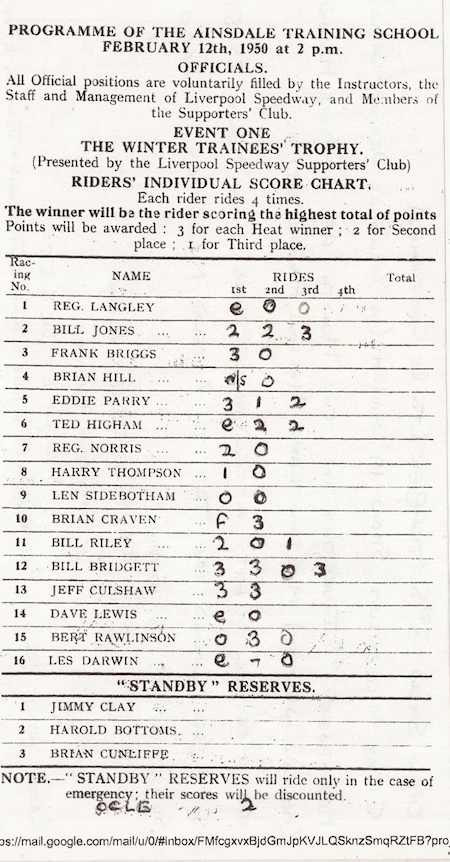 PROGRAMME OF THE AINSDALE TRAINING SCHOOL
FEBRUARY 12th, 1950 at 2 p.m.
OFFICIALS.
All Official positions are voluntarily filled by the Instructors, the
Staff and Management of Liverpool Speedway, and Members of
the Supporters' Club.
EVENT ONE
THE WINTER TRAINEES' TROPHY.
(Presented by the Liverpool Speedway Supporters' Club)
RIDERS' INDIVIDUAL SCORE CHART.
Each rider rides 4 times.
The winner will be the rider scoring the highest total of points
Points will be awarded : 3 for each Heat winner ; 2 for Second
place ; 1 for Third place.
Rac-
ing NAME RIDES Total
No. 1st 2nd 3rd 4th
1 REG. LANGLEY e 0 0
2 BILL JONES ... ... 2 2 3
3 FRANK BRIGGS ... 3 0
4 BRIAN HILL ... ... n/s 0
5 EDDIE PARRY ... ... 3 1 2
6 TED HIGHAM ... ... e 2 2
7 REG. NORRIS ... ... 2 0
8 HARRY THOMPSON ... 1 0
9 LEN SIDEBOTHAM ... 0 0
10 BRIAN CRAVEN ... F 3
11 BILL RILEY ... ... 2 0 1
12 BILL BRIDGETT ... 3 3 0 3
13 JEFF CULSHAW ... 3 3
14 DAVE LEWIS ... ... e 0
15 BERT RAWLINSON ... 0 3 0
16 LES DARWIN ... ... e - 0
"STANDBY" RESERVES.
1 JIMMY CLAY ... ...
2 HAROLD BOTTOMS. ...
3 BRIAN CUNLIFFE ...
NOTE.—"STANDBY" RESERVES will ride only in the case of
emergency; their scores will be discounted.
2
ps://mail.google.com/mail/u/0/#inbox/FMfcgxvxBjdGmJpKVJLQSknzSmqRZtFB?proj